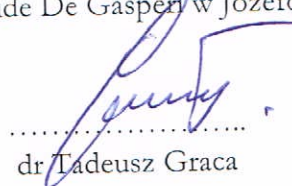 ide De Gasperi w Józefo
……………………..
dr Tadeusz Graca